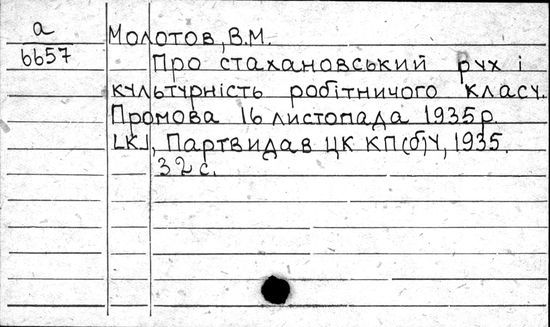 а
6657
Молотов, В.М.
Про стахановський рух і
культурність робітничого класу.
Промова 16 листопада 1935 р.
[К.], Партвидав ЦК КП(б)У, 1935.
32 с.